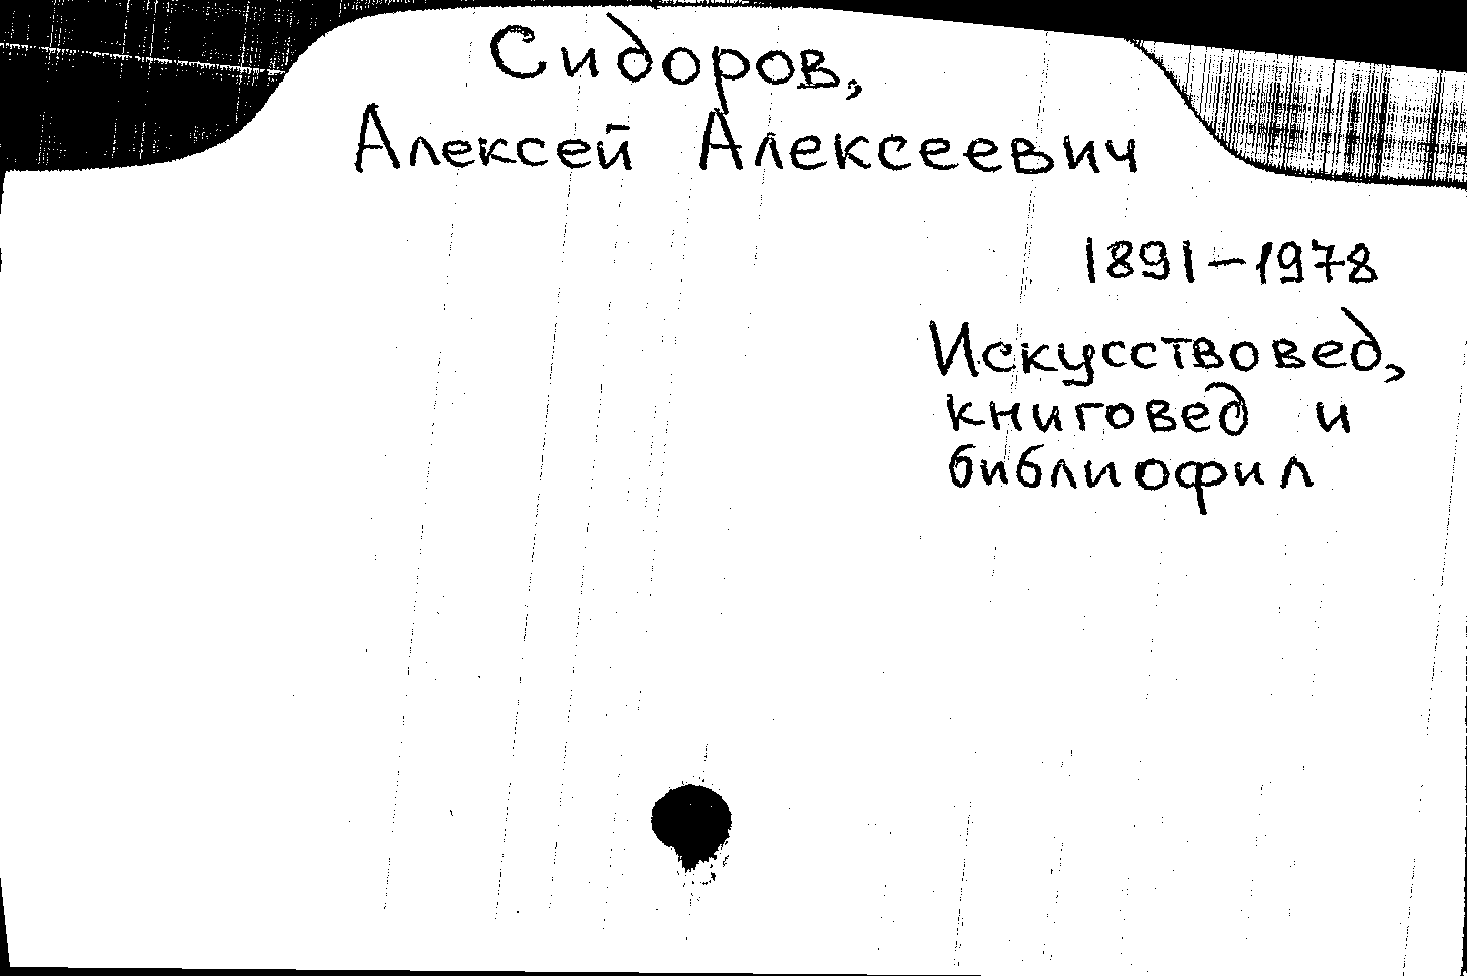 Сидоров,
Алексей Алексеевич
1891–1978
Искусствовед,
книговед и
библиофил